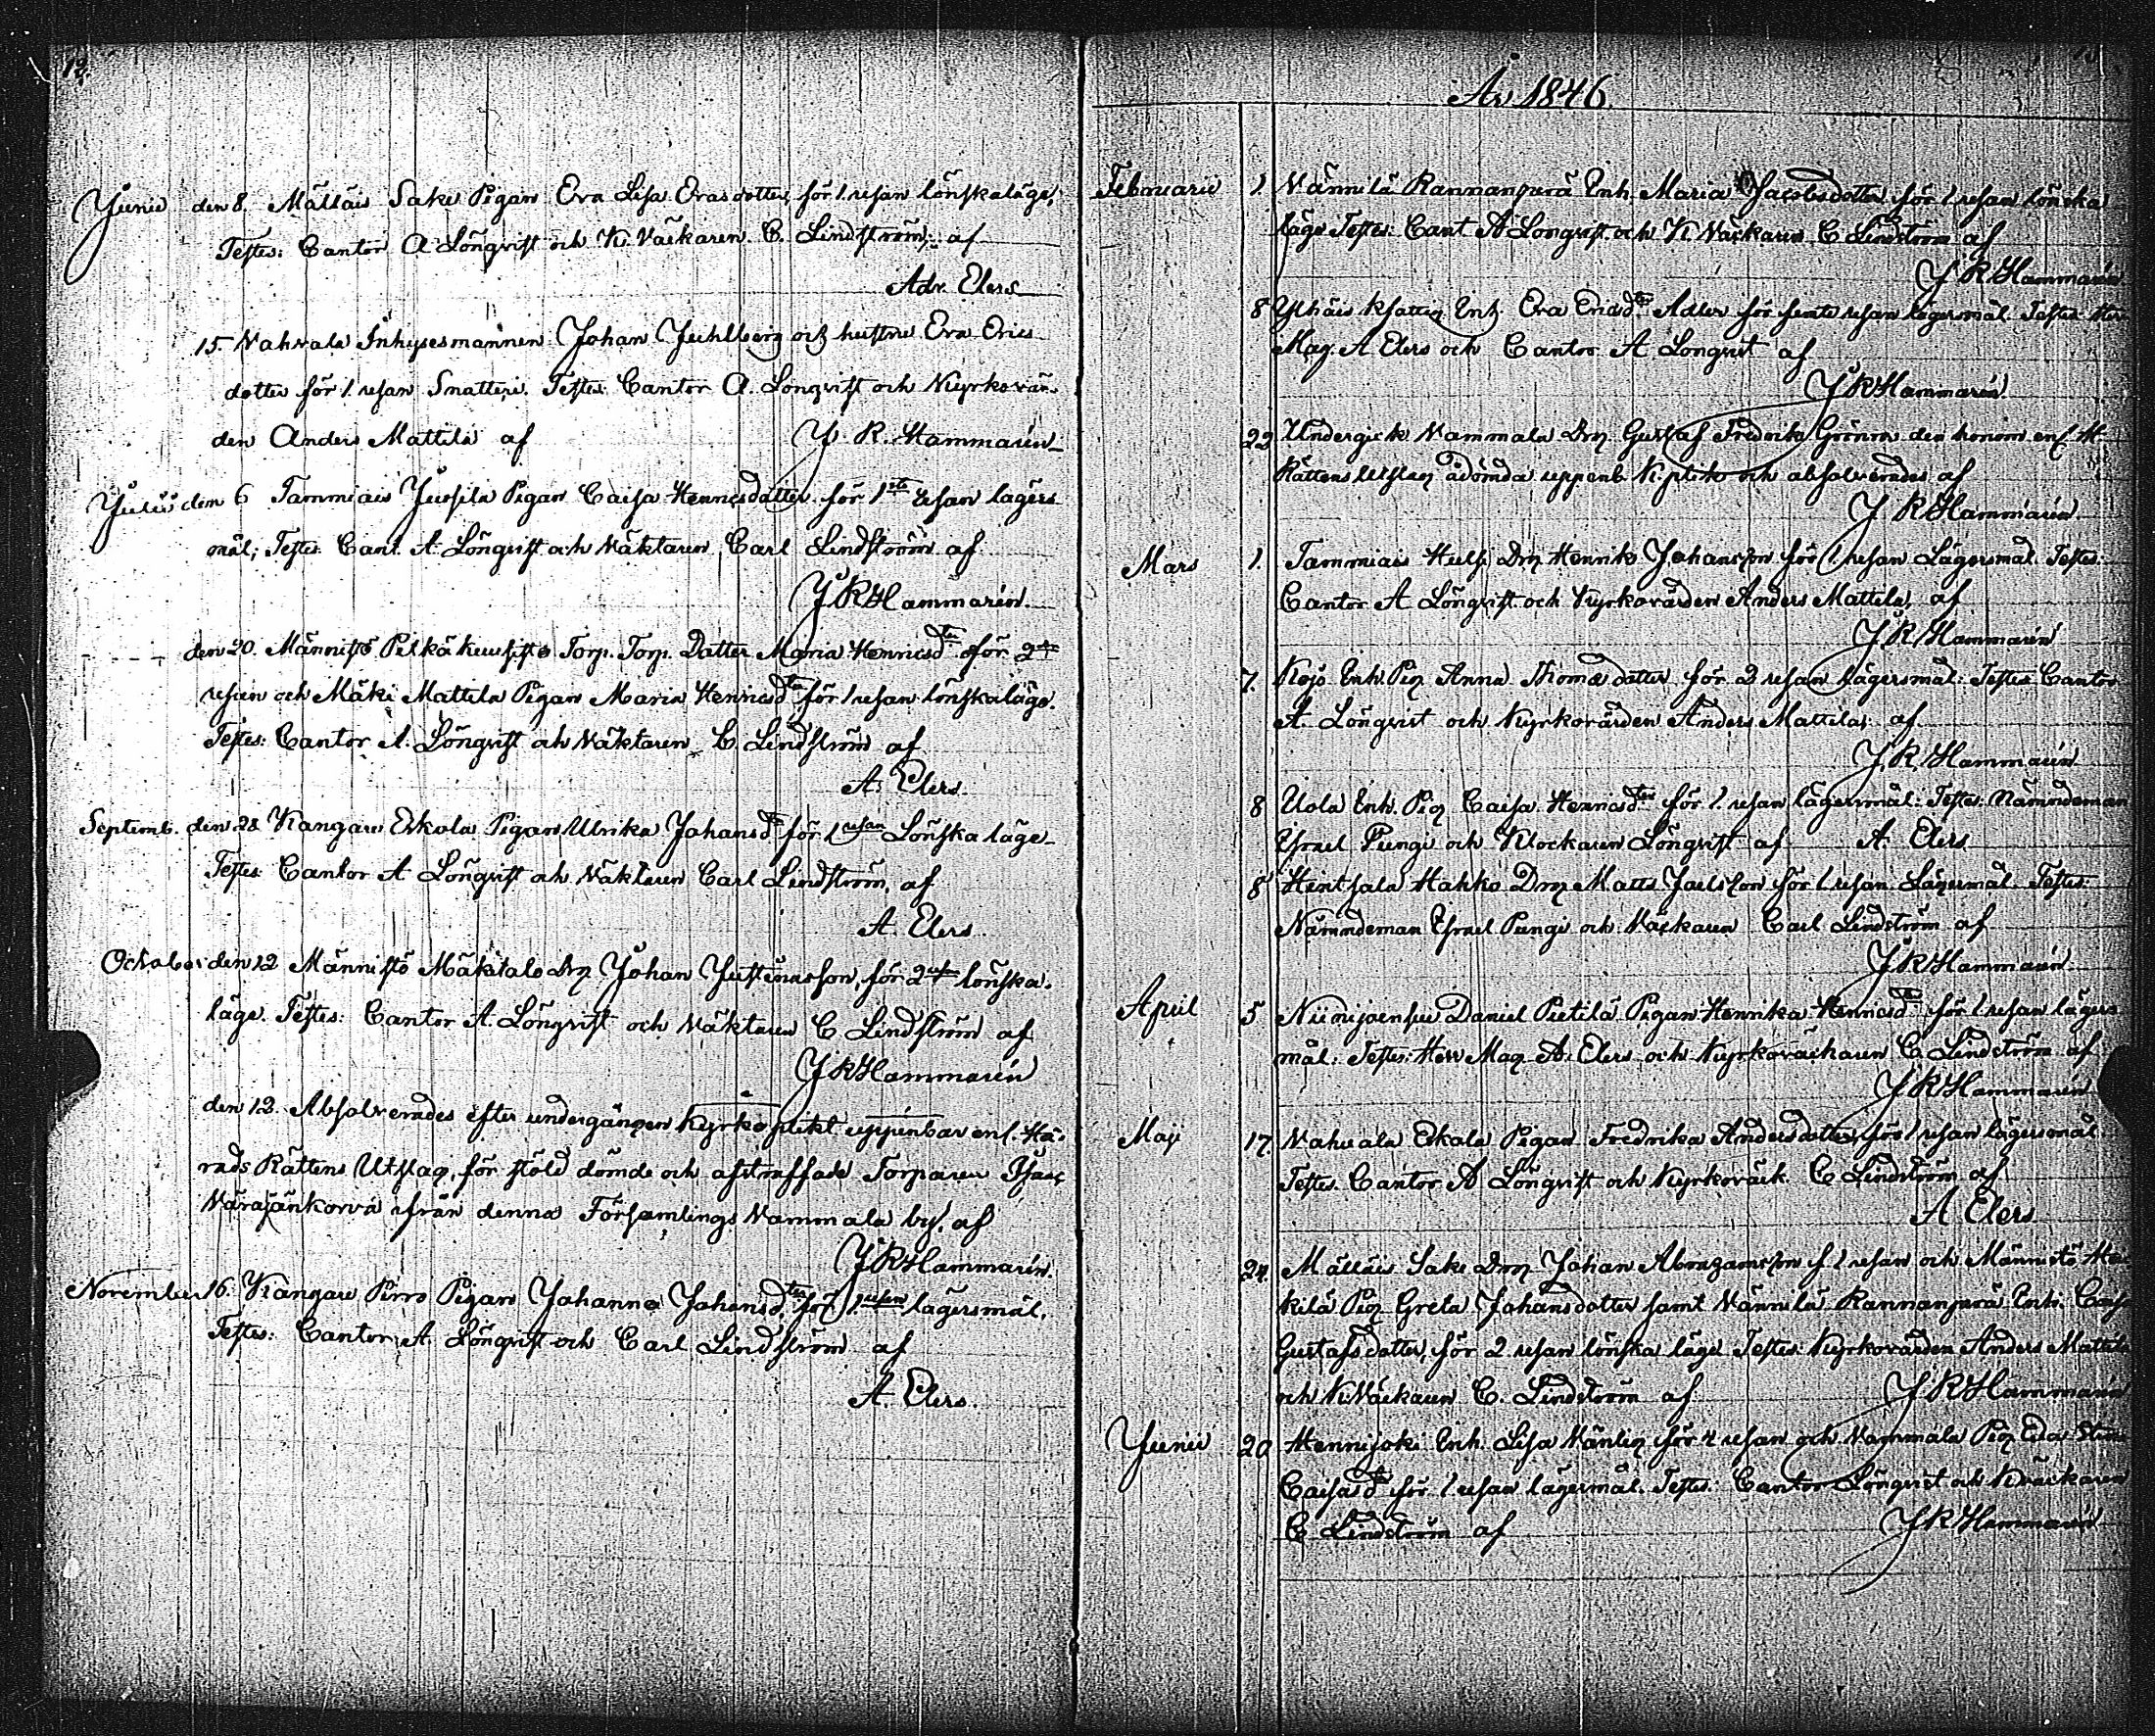 12.
Junii den 8. Mälläis Sake Pigan Eva Lisa Evasdotter, för 1. resan lönskaläge,
Testes: Cantor A Löngvist och K. Väckaren C. Lindström, af
Adr. Elers
15. Nahvala Inhysesmannen Johan Juhlberg och hustru Eva Erics
dotter för 1. resan Snatteri. Testes Cantor A. Longvist och Kyrkovär-
den Anders Mattila af J. R. Hammarén
Julii den 6 Tammiais Jussila Pigan Caisa Henricsdotter för 1sta resan lägers
mål; Testes. Cant. A. Löngvist och Väktaren Carl Lindström af
J R Hammarén.
den 20. Männistö Torp. Torp. Dotter Maria Henricsdter för 2dra
resan och Mäki Mattila Pigan Maria Henricsdter för 1 resan lönskaläge.
Testes: Cantor A. Löngvist och Väktaren C. Lindström af
A. Elers.
Septemb. den 28 Kangais Eskola Pigan Ulrika Johansdr för 1 resan Lönska läge
Testes Cantor A Löngvist och Väktaren Carl Lindström, af
A. Elers.
October den 12 Männistö Mäkitalo Drg Johan, för 2 lönska-
läge. Testes: Cantor A. Löngvist och Väktaren C Lindström af
J R Hammarén
den 12. Absolverades efter undergången kyrkoplikt uppenbar enl. Hä-
rads Rättens Utslag, för stöld dömde och afstraffade Torparen Isaac
från denna Församlings Vammala by, af
J R Hammarén.
November 16. Kangais Pirro Pigan Johanna Johansdter för 1 resan lägersmål.
Testes: Cantor A. Löngvist och Carl Lindström af
A. Elers.
År 1846.
Februarii 1. Männilä Rannanperä Enh. Maria Jacobsdotter för 1 resan lönska
läge Testes: Cant A Longvist och K Väckaren C Lindström af
J R Hammarén
8 Enk. Eva Ericsdtr Adler för resan lägersmål. Testes Herr
Mag. A Elers och Cantor A Longvist af
J R Hammarén
22 Undergick Vammala Drg Gustaf Fredrik Grönroos den honom enl. H.
Rättens Utslag ådömda uppenb K. plikt och absolverades af
J R Hammarén.
Mars 1. Tammiais Drg Henrik Johansson för 1 resan Lägersmål Testes:
Cantor A Löngvist och Kyrkovärden Anders Mattila, af
J R Hammarén
7. Kojo Enh. Pig Anna Thomædotter för 2 resan lägersmål: Testes Cantor
A. Löngvist och Kyrkovärden Anders Mattila, af
J. R. Hammarén.
8 Uola Enh. Pig Caisa Henricsdter för 1. resan lägersmål: Testes: Nämndeman
Israel Pungi och Klockaren Löngvist af A. Elers
8 Heinsala Hakko Drg Matts Joelsson för 1 resan Lägersmål Testes:
Nämndeman Israel Pungi och Väckaren Carl Lindström af
J R Hammarén
April 5 Niinijoensuu Daniel Pietilä Pigan Henrika Henricsdtr för 1 resan lägers
mål: Testes: Herr Mag A. Elers och Kyrkoväckaren C Lindström af
J R Hammarén
Maji 17. Nahvala Eskola Pigan Fredrika Andersdotter för 1 resan lägersmål
Testes. Cantor A Löngvist och Kyrkoväck. C Lindström af
A Elers
24. Mälläis Sake Drg Johan Abrahamsson f. 1 resan och Männistö
Pig Greta Johansdotter samt Männilä Rannanperä Enh.
Gustafsdotter, för 2 resan lönska läge Testes: Kyrkovärden Anders Mattila
och K. Väckaren C. Lindström af J R Hammarén
Junii 20 Hennijoki Enh. Lisa för resan och Vammala Pig
Caisasdtr för 1 resan lägersmål. Testes: Cantor Löngvist och K väckaren
C Lindström af J R Hammarén